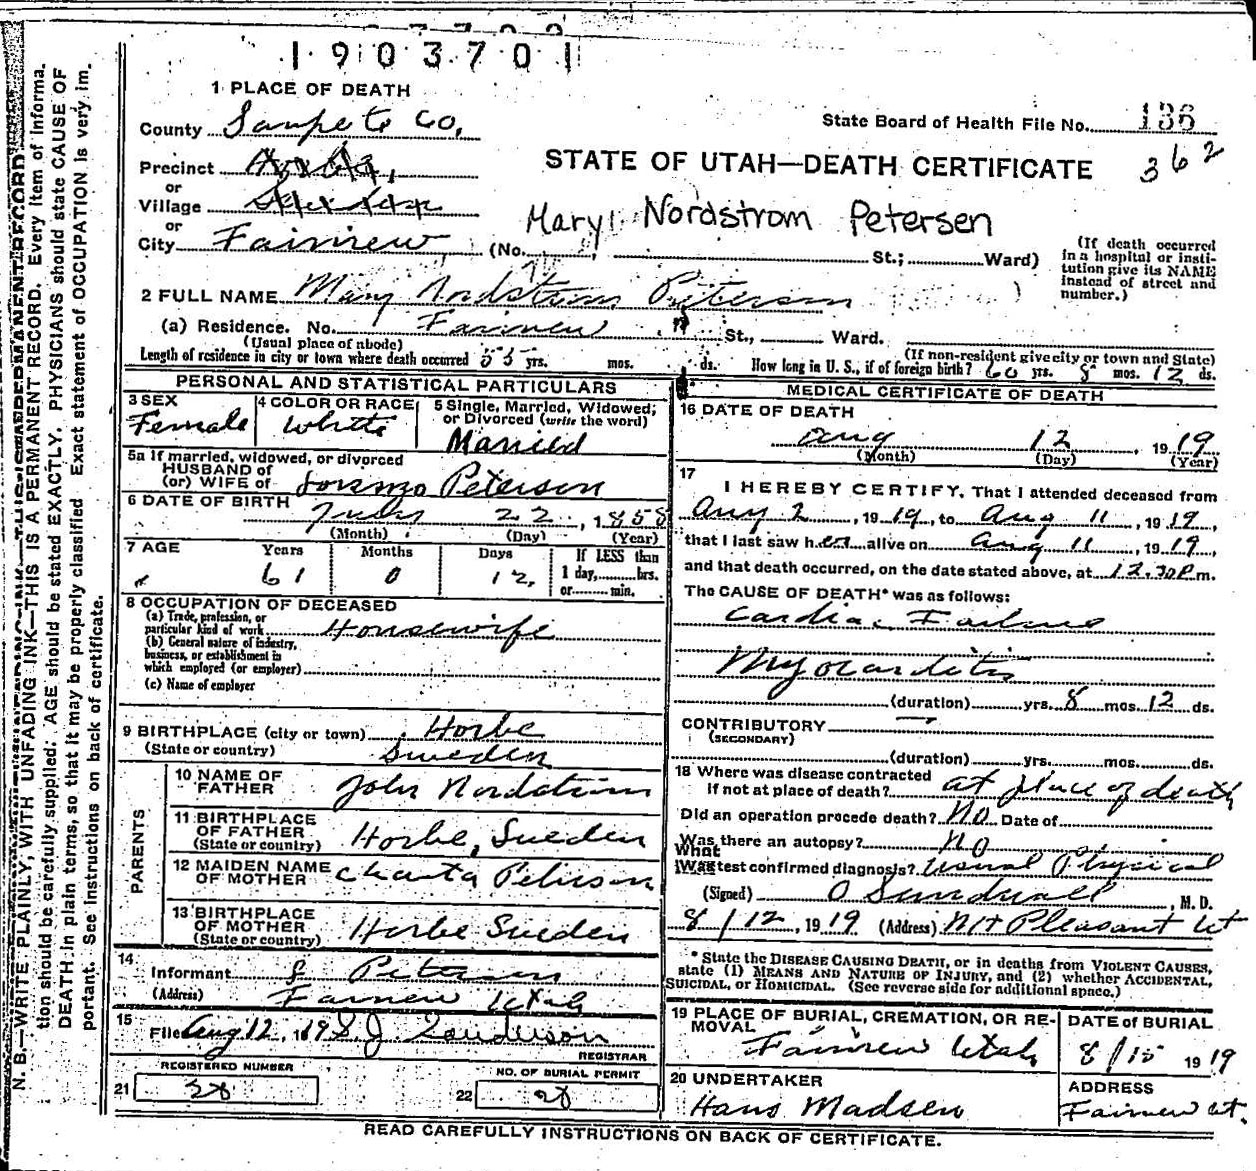 1903701
1 PLACE OF DEATH
State Board of Health File No. 136
362
County Sanpete Co.
STATE OF UTAH—DEATH CERTIFICATE
Precinct
or
Village
or
Mary Nordstrom Petersen
City Fairview (No. St.; Ward)
(If death occurred
in a hospital or insti-
tution give its NAME
instead of street and
number.)
2 FULL NAME Mary Nordstrom Peterson
(a) Residence. No. Fairview St., Ward.
(Usual place of abode)
(If non-resident give city or town and State)
Length of residence in city or town where death occurred 55 yrs. mos. ds. How long in U. S., if of foreign birth? 60 yrs. 8 mos. 12 ds.
PERSONAL AND STATISTICAL PARTICULARS
3 SEX
Female
4 COLOR OR RACE
White
5 Single, Married, Widowed,
or Divorced (write the word)
Married
5a If married, widowed, or divorced
HUSBAND of
(or) WIFE of Lorenzo Peterson
6 DATE OF BIRTH
July 22, 1858
(Month) (Day) (Year)
7 AGE Years Months Days If LESS than
61 0 12 1 day, hrs.
or min.
8 OCCUPATION OF DECEASED
(a) Trade, profession, or
particular kind of work Housewife
(b) General nature of industry,
business, or establishment in
which employed (or employer)
(c) Name of employer
9 BIRTHPLACE (city or town) Horbe
(State or country) Sweden
PARENTS
10 NAME OF
FATHER John Nordstrom
11 BIRTHPLACE
OF FATHER
(State or country) Horbe, Sweden
12 MAIDEN NAME
OF MOTHER Peterson
13 BIRTHPLACE
OF MOTHER
(State or country) Horbe Sweden
14
Informant Petersen
(Address) Fairview Utah
15
Filed Aug 12, 19
REGISTRAR
REGISTERED NUMBER
21 28
NO. OF BURIAL PERMIT
22 28
MEDICAL CERTIFICATE OF DEATH
16 DATE OF DEATH
Aug 12, 1919
(Month) (Day) (Year)
17
I HEREBY CERTIFY, That I attended deceased from
Aug 2, 1919, to Aug 11, 1919,
that I last saw her alive on Aug 11, 1919,
and that death occurred, on the date stated above, at 12.30 P m.
The CAUSE OF DEATH* was as follows:
Cardiac Failure
Myocarditis
(duration) yrs. 8 mos. 12 ds.
CONTRIBUTORY —
(SECONDARY)
(duration) yrs. mos. ds.
18 Where was disease contracted
if not at place of death? at place of death
Did an operation precede death? No Date of
Was there an autopsy? No
What
Was test confirmed diagnosis? Usual Physical
(Signed) O Sundwall, M. D.
8/12, 1919 (Address) Mt Pleasant Ut
* State the DISEASE CAUSING DEATH, or in deaths from VIOLENT CAUSES,
state (1) MEANS AND NATURE OF INJURY, and (2) whether ACCIDENTAL,
SUICIDAL, or HOMICIDAL. (See reverse side for additional space.)
19 PLACE OF BURIAL, CREMATION, OR RE-
MOVAL
Fairview Utah
DATE of BURIAL
8/15 1919
20 UNDERTAKER
Hans Madsen
ADDRESS
Fairview Ut.
READ CAREFULLY INSTRUCTIONS ON BACK OF CERTIFICATE.
N. B.—WRITE PLAINLY, WITH UNFADING INK—THIS IS A PERMANENT RECORD. Every item of informa-
tion should be carefully supplied. AGE should be stated EXACTLY. PHYSICIANS should state CAUSE OF
DEATH in plain terms, so that it may be properly classified. Exact statement of OCCUPATION is very im-
portant. See instructions on back of certificate.